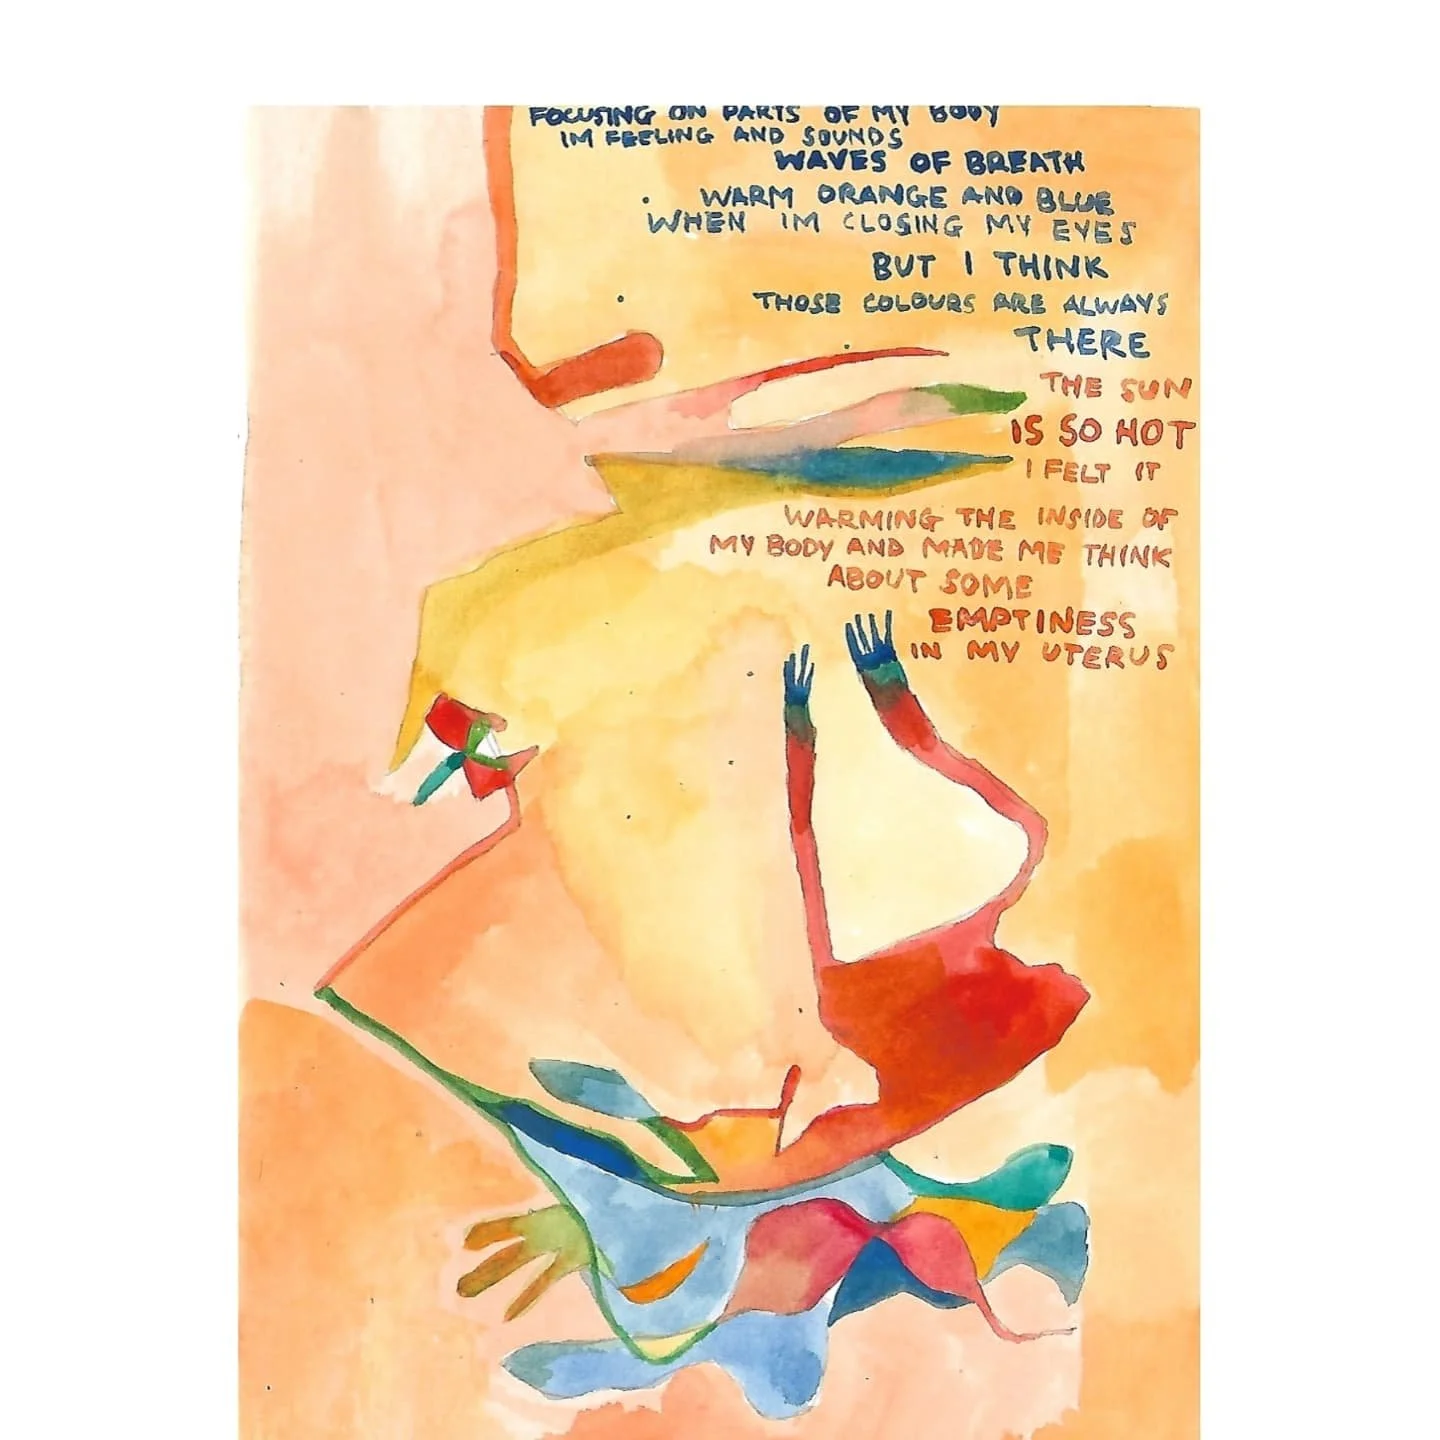 FOCUSING ON PARTS OF MY BODY
IM FEELING AND SOUNDS
WAVES OF BREATH
WARM ORANGE AND BLUE
WHEN IM CLOSING MY EYES
BUT I THINK
THOSE COLOURS ARE ALWAYS
THERE
THE SUN
IS SO HOT
I FELT IT
WARMING THE INSIDE OF
MY BODY AND MADE ME THINK
ABOUT SOME
EMPTINESS
IN MY UTERUS